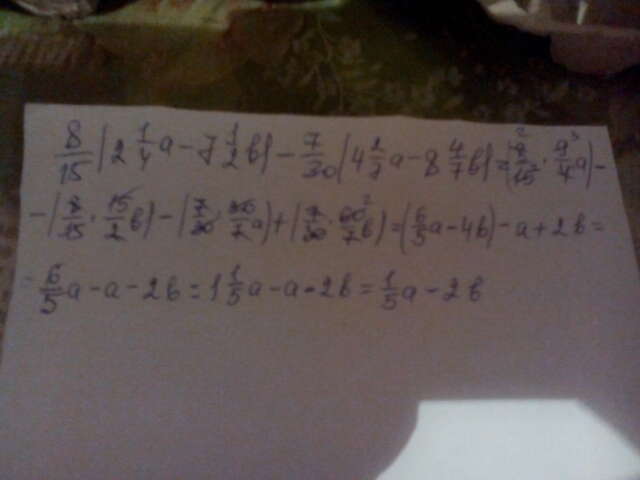 8/15(2 1/4 a - 7 1/2 b) - 7/30(4 2/7 a - 8 4/7 b) = (8²/15 · 9³/4 a) -
- (8/15 · 15/2 b) - (7/30 · 30/7 a) + (7/30 · 60²/7 b) = (6/5 a - 4b) - a + 2b =
= 6/5 a - a - 2b = 1 1/5 a - a - 2b = 1/5 a - 2b